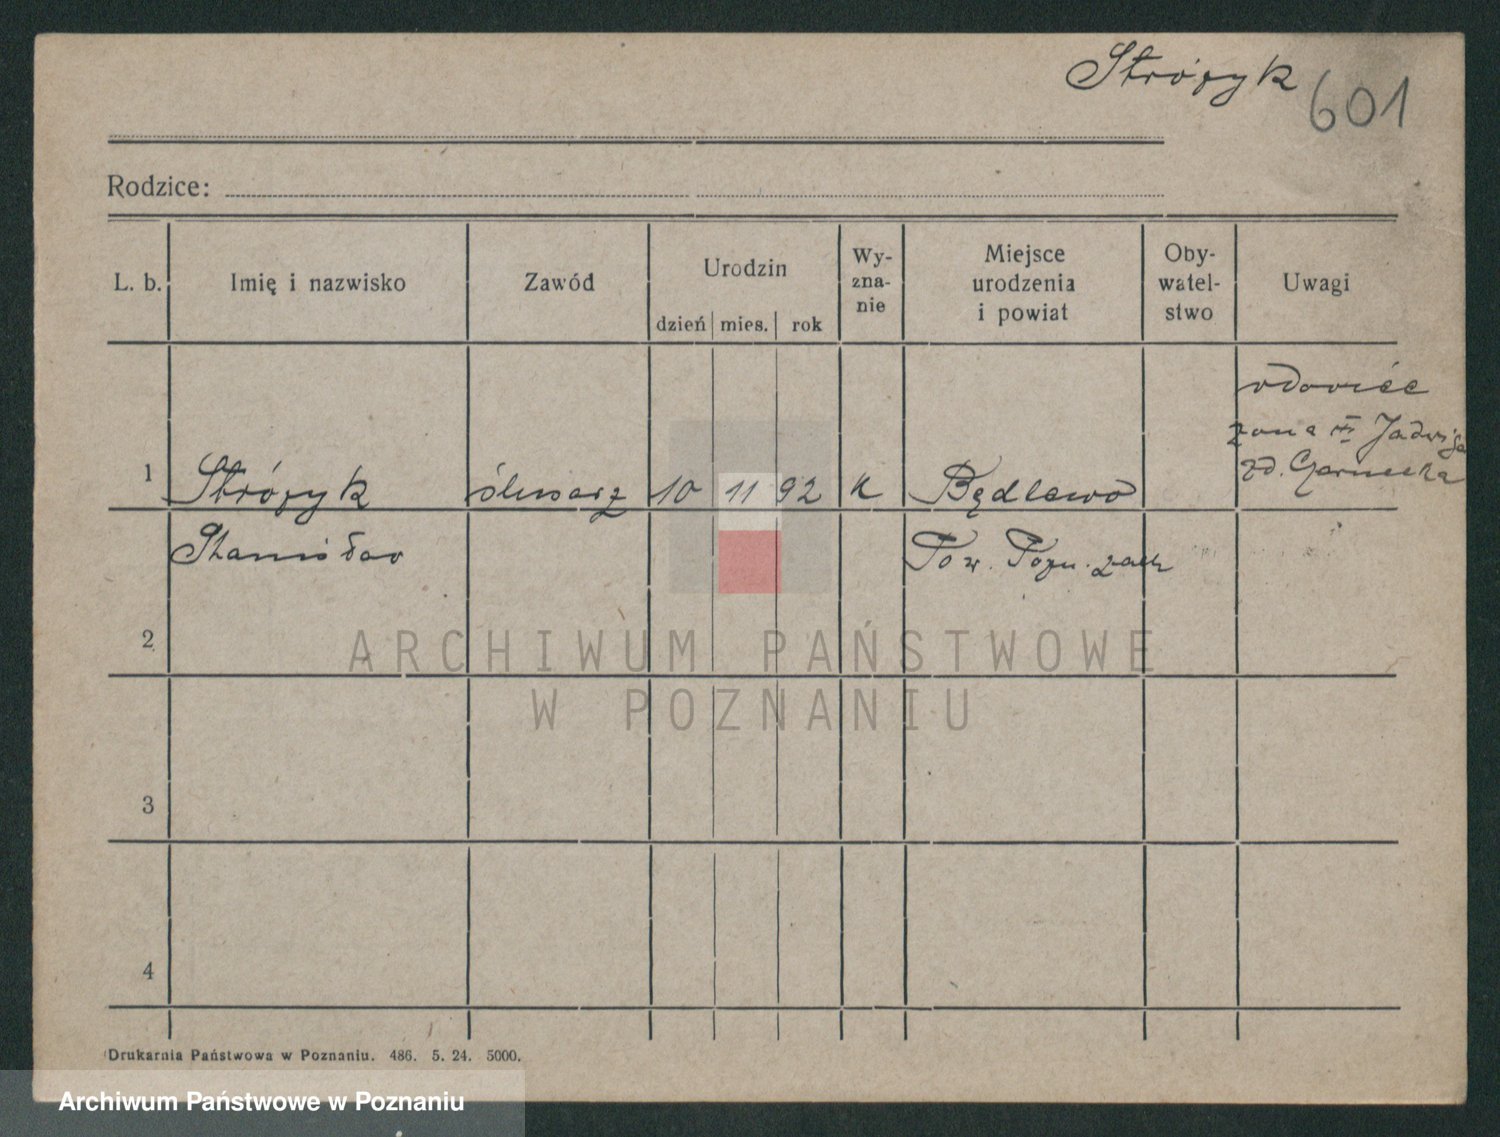 Stróżyk
601
Rodzice:
L. b.
Imię i nazwisko
Zawód
Urodzin
dzień mies. rok
Wy-
zna-
nie
Miejsce
urodzenia
i powiat
Oby-
watel-
stwo
Uwagi
wdowiec
żona II Jadwiga
zd. Czarnecka
1 Stróżyk ślusarz 10 11 92 k Będlewo
Stanisław Pow. Pozn. zach
2
3
4
ARCHIWUM PAŃSTWOWE
W POZNANIU
Drukarnia Państwowa w Poznaniu. 486. 5. 24. 5000.
Archiwum Państwowe w Poznaniu